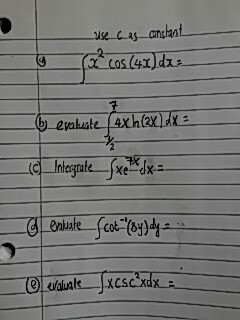 use c as constant
(a) ∫x² cos (4x) dx =
(b) evaluate ∫_{1/2}^{7} 4x h(2x) dx =
(c) Intergrate ∫xe^{7x} dx =
(d) evaluate ∫cot⁻¹(8y) dy =
(e) evaluate ∫xcsc²xdx =